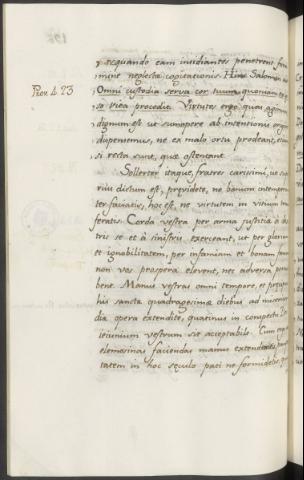 nequando eam insidiantes penetrent
mine neglecta cogitationis. Hinc Salomon
Prov. 4. 23
Omni custodia serva cor tuum quoniam
so vita procedit. Virtutes ergo quas agim
dignum est ut summopere ab intentionis orig
dupensemus, ne ex malo ortu prodeant, etiam
si recta sint, quæ ostentant
Sollerter itaque, fratres carissimi, ut su
rius dictum est, prævidete, ne bonum intempe
ter faciatis, hoc est, ne virtutem in vitium
feratis. Corda vestra per arma justitiæ à
tris se et à sinistris exerceant, ut per gloriam
et ignobilitatem, per infamiam et bonam famam
non vos prospera elevent, nec adversa pertur
bent. Manus vestras omni tempore, et præcipue
his sanctæ quadragesimæ diebus ad misericor
diæ opera extendite, quatinus in conspectu
ieiunium vestrum sit acceptabile. Cum
elemosinas faciendas manus extenditis, pau
tatem in hoc seculo pati ne formidetis